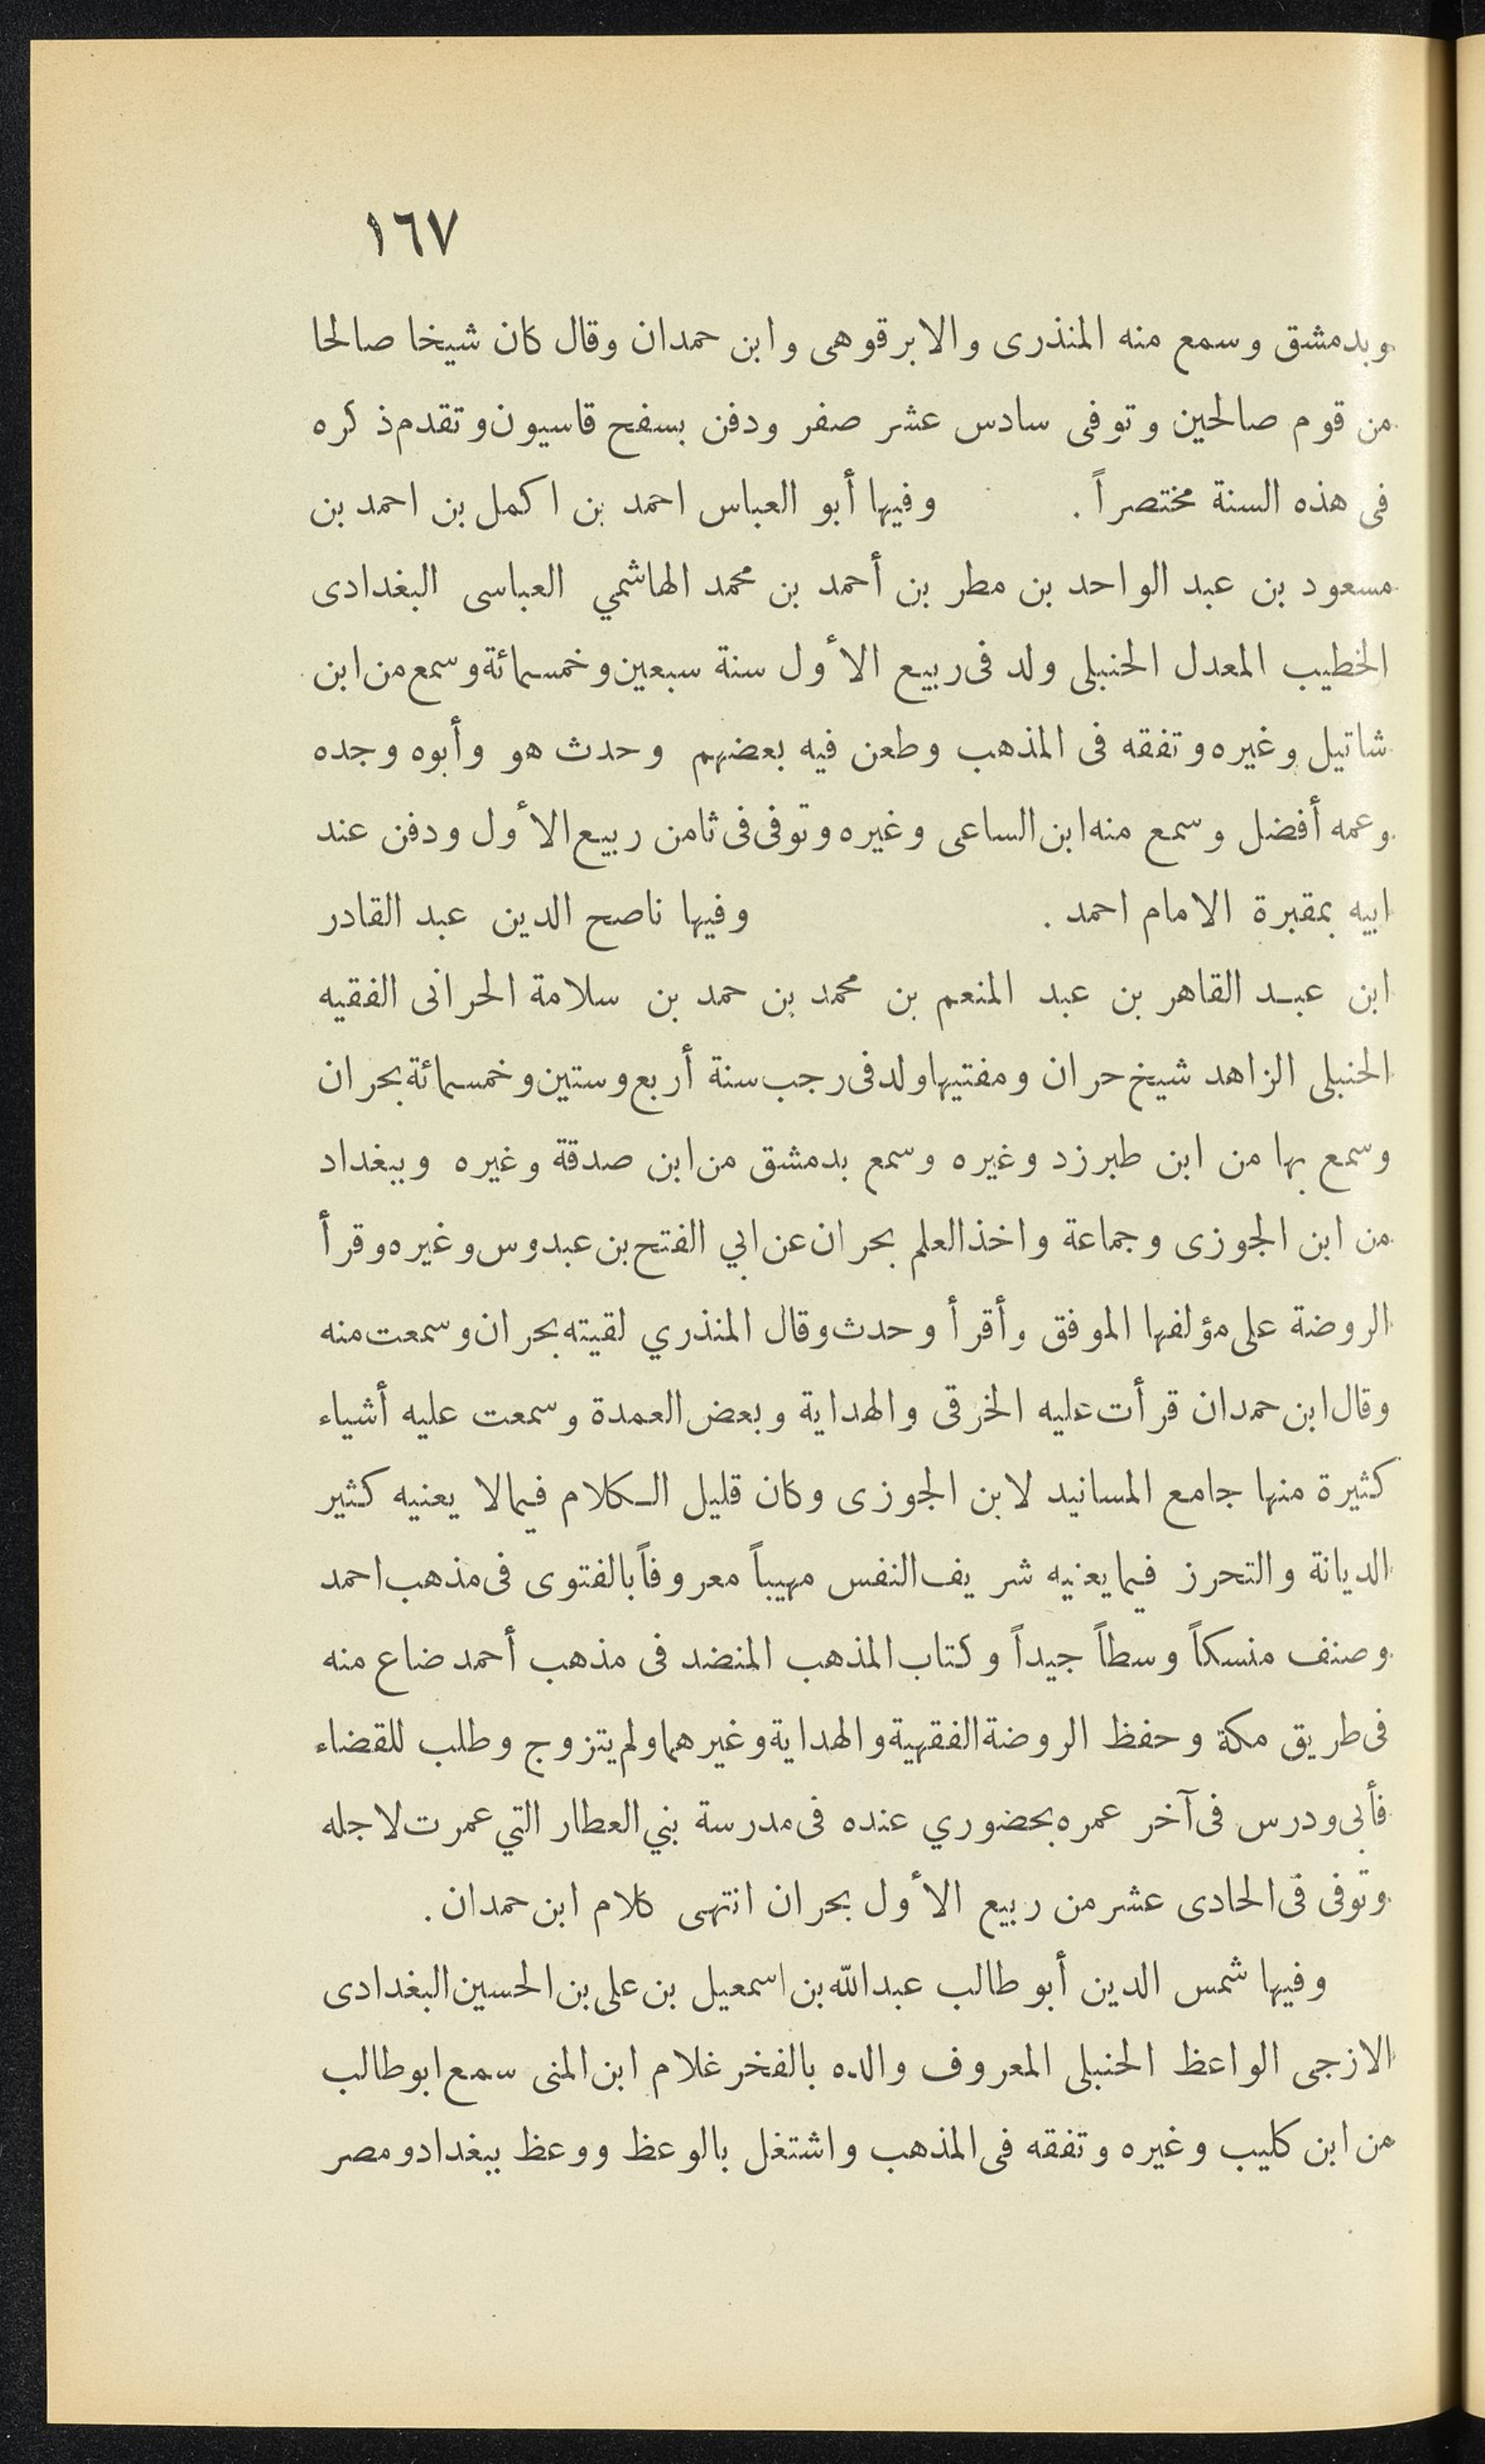 ١٦٧
وبدمشق وسمع منه المنذرى والابرقوهى وابن حمدان وقال كان شيخا صالحا
من قوم صالحين وتوفى سادس عشر صفر ودفن بسفح قاسيون وتقدم ذكره
فى هذه السنة مختصراً . وفيها أبو العباس احمد بن اكمل بن احمد بن
مسعود بن عبد الواحد بن مطر بن أحمد بن محمد الهاشمي العباسى البغدادى
الخطيب المعدل الحنبلى ولد فى ربيع الأول سنة سبعين وخمسمائة وسمع من ابن
شاتيل وغيره وتفقه فى المذهب وطعن فيه بعضهم وحدث هو وأبوه وجده
وعمه أفضل وسمع منه ابن الساعى وغيره وتوفى فى ثامن ربيع الأول ودفن عند
ابيه بمقبرة الامام احمد . وفيها ناصح الدين عبد القادر
ابن عبد القاهر بن عبد المنعم بن محمد بن حمد بن سلامة الحرانى الفقيه
الحنبلى الزاهد شيخ حران ومفتيها ولد فى رجب سنة أربع وستين وخمسمائة بحران
وسمع بها من ابن طبرزد وغيره وسمع بدمشق من ابن صدقة وغيره وببغداد
من ابن الجوزى وجماعة واخذ العلم بحران عن ابي الفتح بن عبدوس وغيره وقرأ
الروضة على مؤلفها الموفق وأقرأ وحدث وقال المنذري لقيته بحران وسمعت منه
وقال ابن حمدان قرأت عليه الخرقى والهداية وبعض العمدة وسمعت عليه أشياء
كثيرة منها جامع المسانيد لابن الجوزى وكان قليل الكلام فيما لا يعنيه كثير
الديانة والتحرز فيما يعنيه شريف النفس مهيباً معروفاً بالفتوى فى مذهب احمد
وصنف منسكاً وسطاً جيداً وكتاب المذهب المنضد فى مذهب أحمد ضاع منه
فى طريق مكة وحفظ الروضة الفقهية والهداية وغيرهما ولم يتزوج وطلب للقضاء
فأبى ودرس فى آخر عمره بحضوري عنده فى مدرسة بني العطار التي عمرت لاجله
وتوفى فى الحادى عشر من ربيع الأول بحران انتهى كلام ابن حمدان .
وفيها شمس الدين أبو طالب عبد الله بن اسمعيل بن على بن الحسين البغدادى
الازجى الواعظ الحنبلى المعروف والده بالفخر غلام ابن المنى سمع ابو طالب
من ابن كليب وغيره وتفقه فى المذهب واشتغل بالوعظ ووعظ ببغداد ومصر